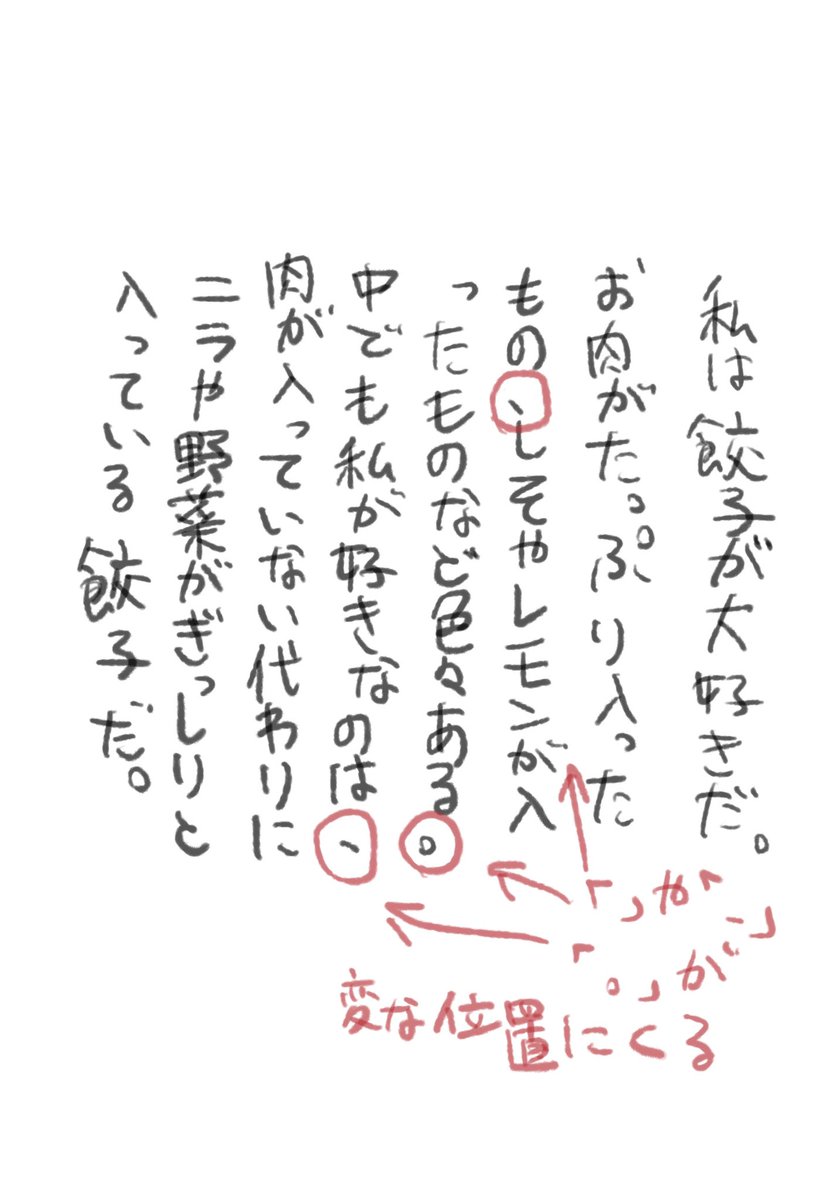 私は餃子が大好きだ。
お肉がたっぷり入った
もの、しそやレモンが入
ったものなど色々ある。
中でも私が好きなのは、
肉が入っていない代わりに
ニラや野菜がぎっしりと
入っている餃子だ。
「」や「、」
「。」が
変な位置にくる